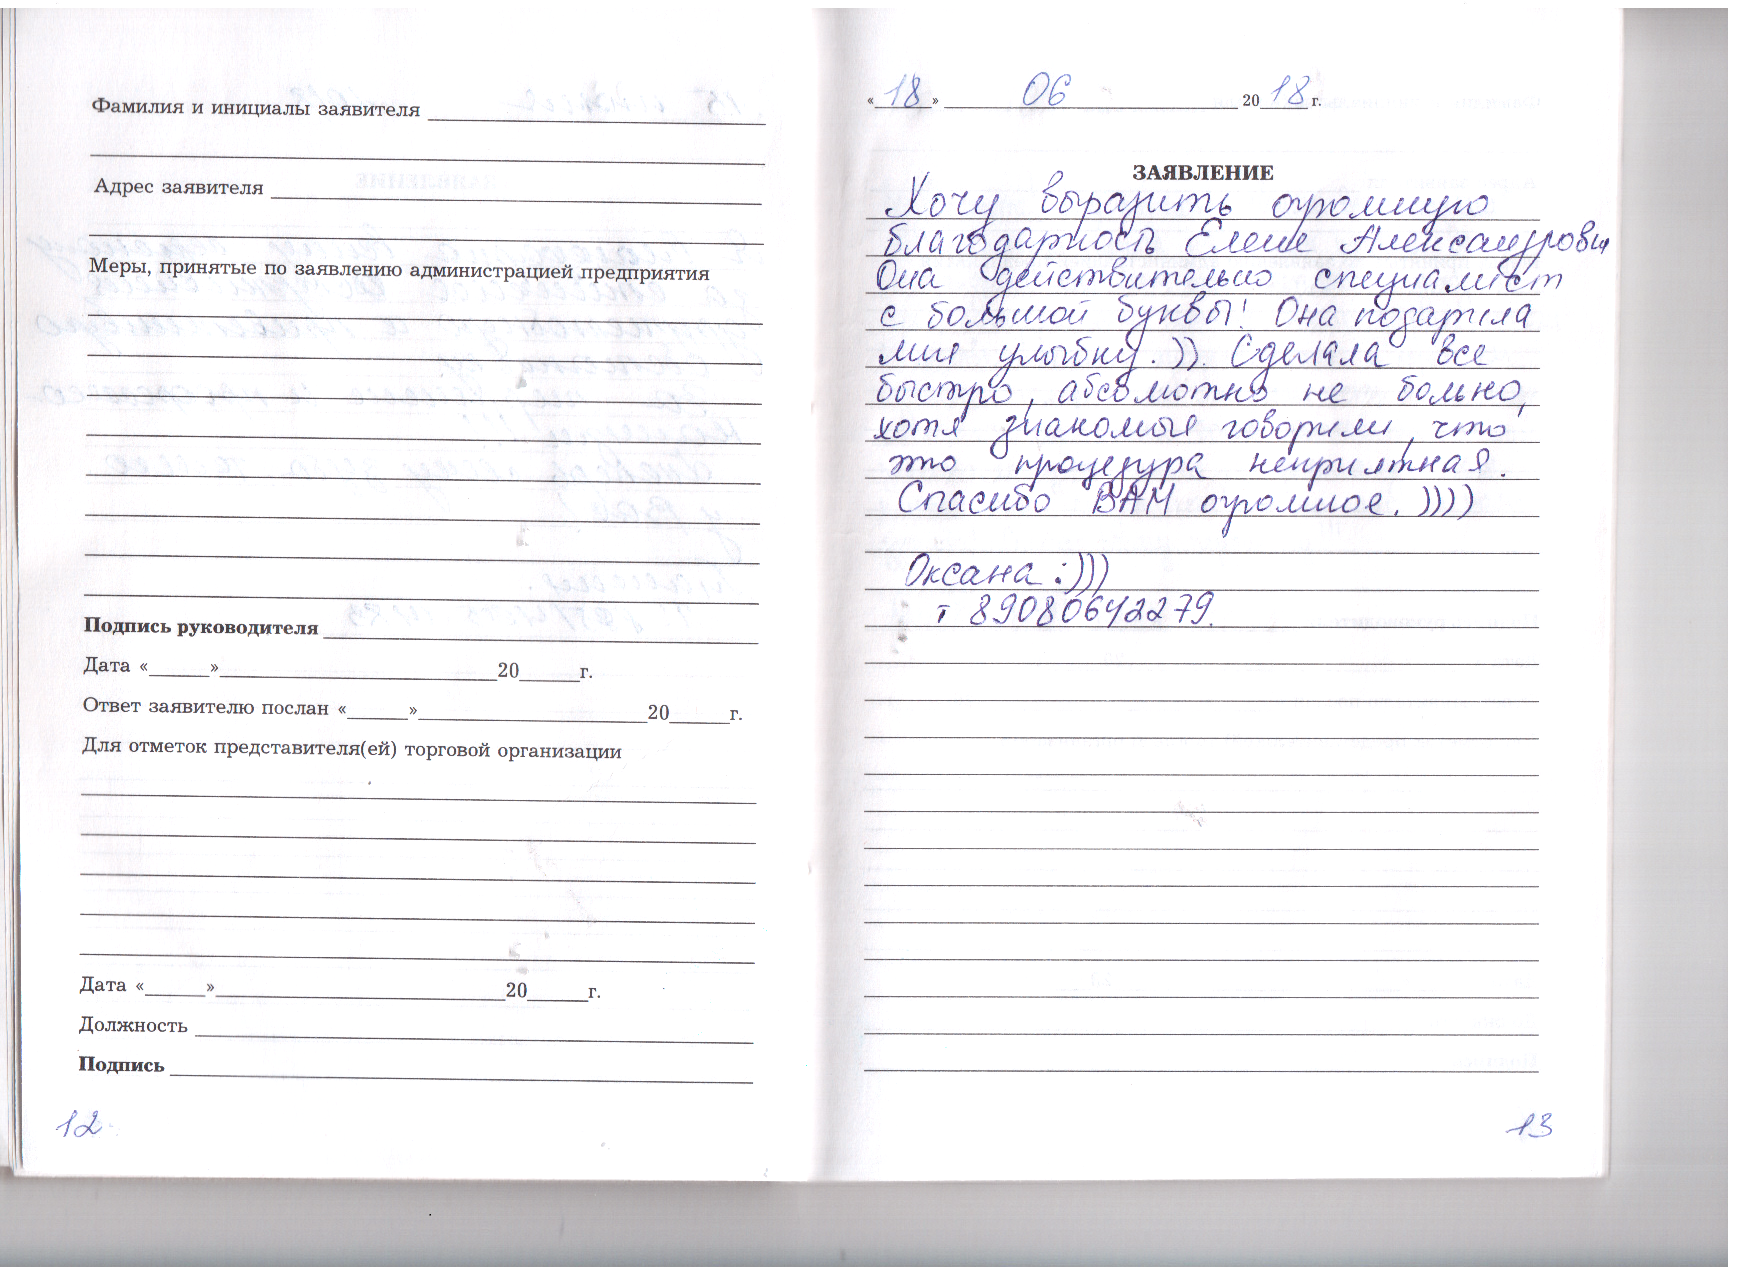 Фамилия и инициалы заявителя
Адрес заявителя
Меры, принятые по заявлению администрацией предприятия
Подпись руководителя
Дата «______»______20______г.
Ответ заявителю послан «______»______20______г.
Для отметок представителя(ей) торговой организации
Дата «______»______20______г.
Должность
Подпись
12
«18» 06 2018 г.
ЗАЯВЛЕНИЕ
Хочу выразить огромную
благодарность Елене Александровн
Она действительно специалист
с большой буквы! Она подарила
мне улыбку. )). Сделала все
быстро, абсолютно не больно,
хотя знакомые говорили, что
это процедура неприятная.
Спасибо ВАМ огромное. ))))
Оксана :)))
т 89080642279.
13